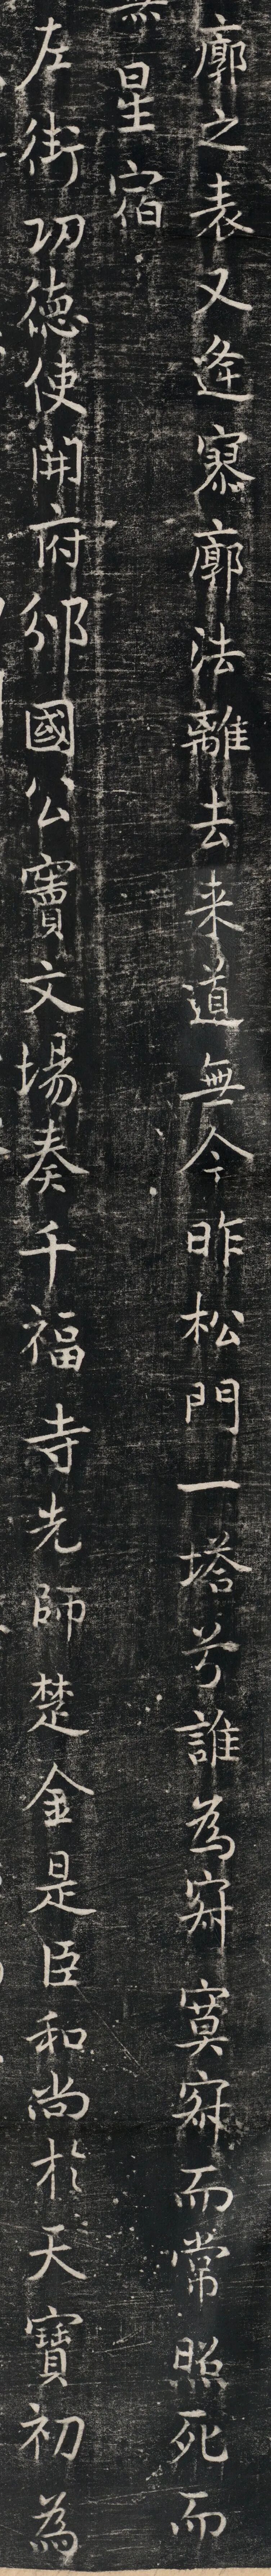 廓之表又逢寥廓法離去来道無今昨松門一塔兮誰為寂寞寂而常照死而
星宿
左街功德使開府邠國公竇文場奏千福寺先師楚金是臣和尚於天寶初為